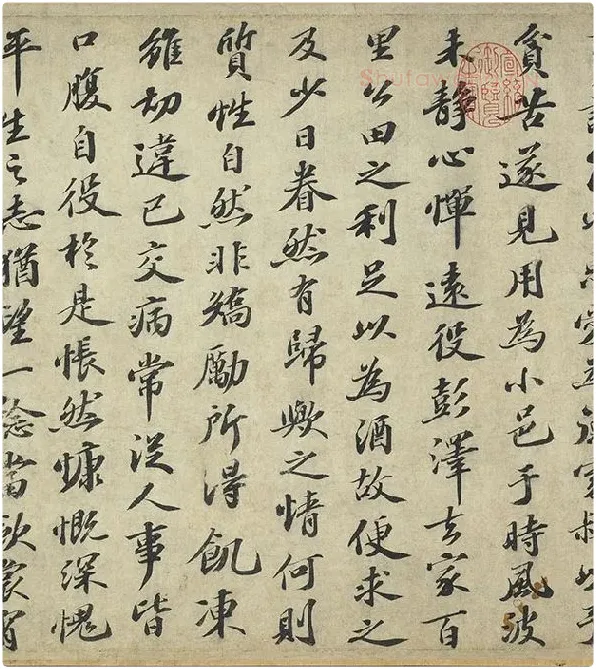 貧苦遂見用為小邑于時風波
未靜心憚遠役彭澤去家百
里公田之利足以為酒故便求之
及少日眷然有歸歟之情何則
質性自然非矯勵所得飢凍
雖切違己交病常從人事皆
口腹自役於是悵然慷慨深愧
平生之志猶望一稔當斂裳宵